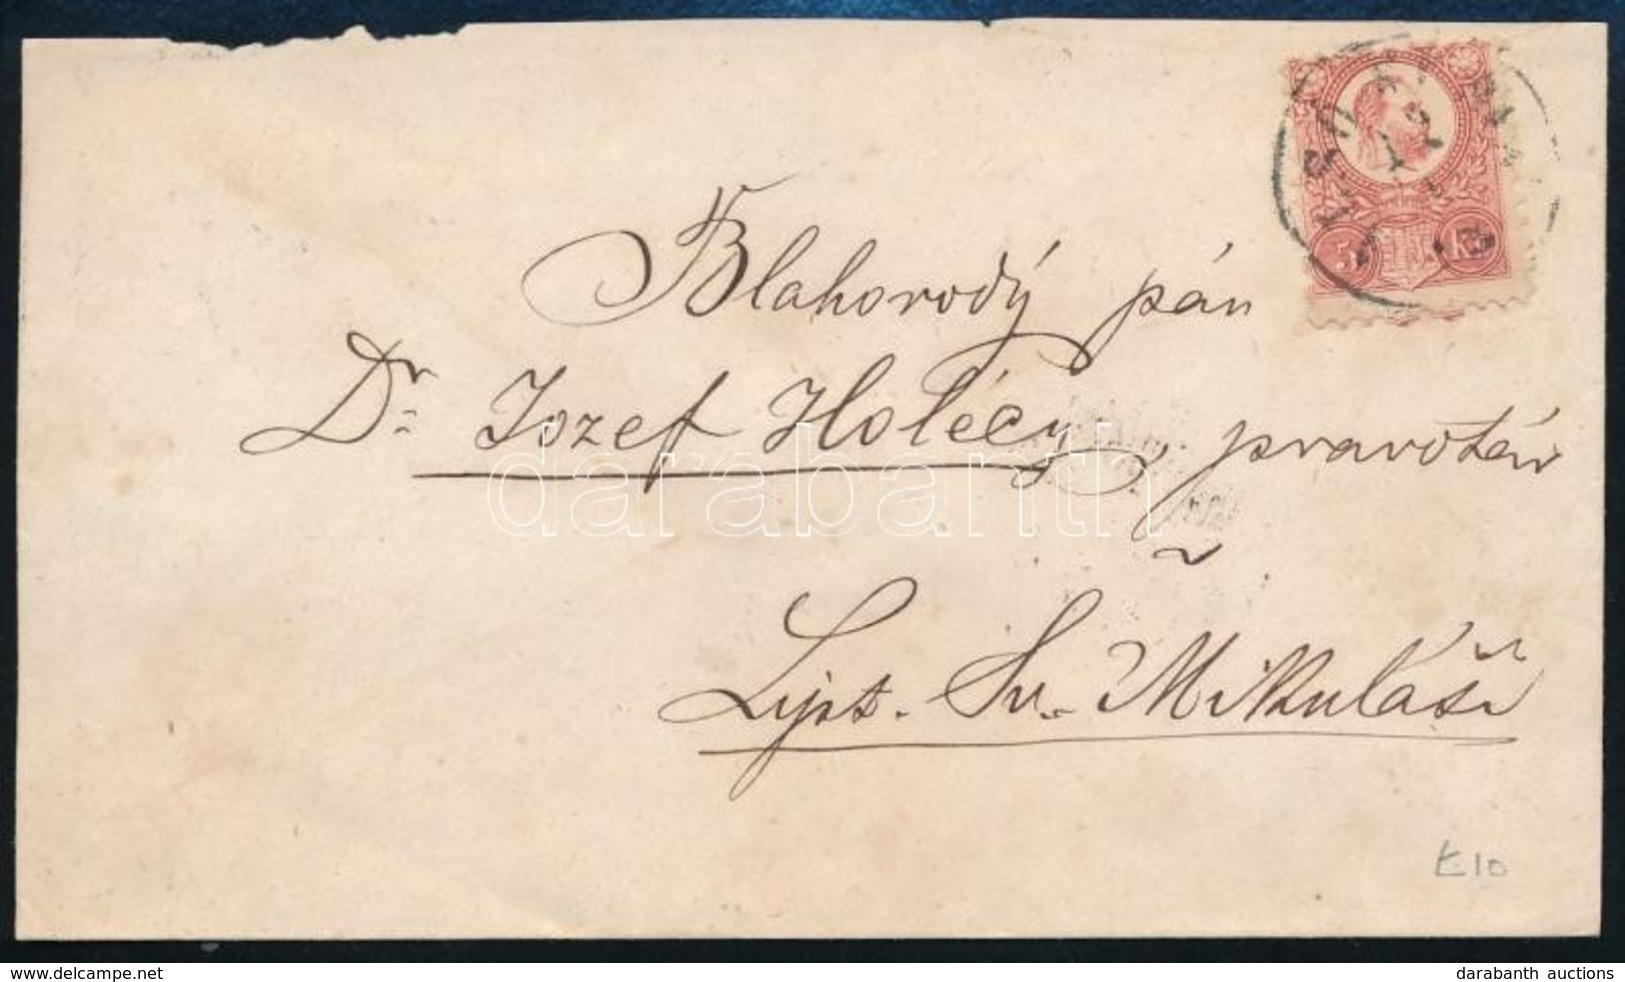 Blahorodý pán
Dr. Jozef Holécy, pravotár
v
Lipt. Sv. Mikuláši
5 Kr
ALSÓ
darabanth
£10
www.delcampe.net
darabanth auctions